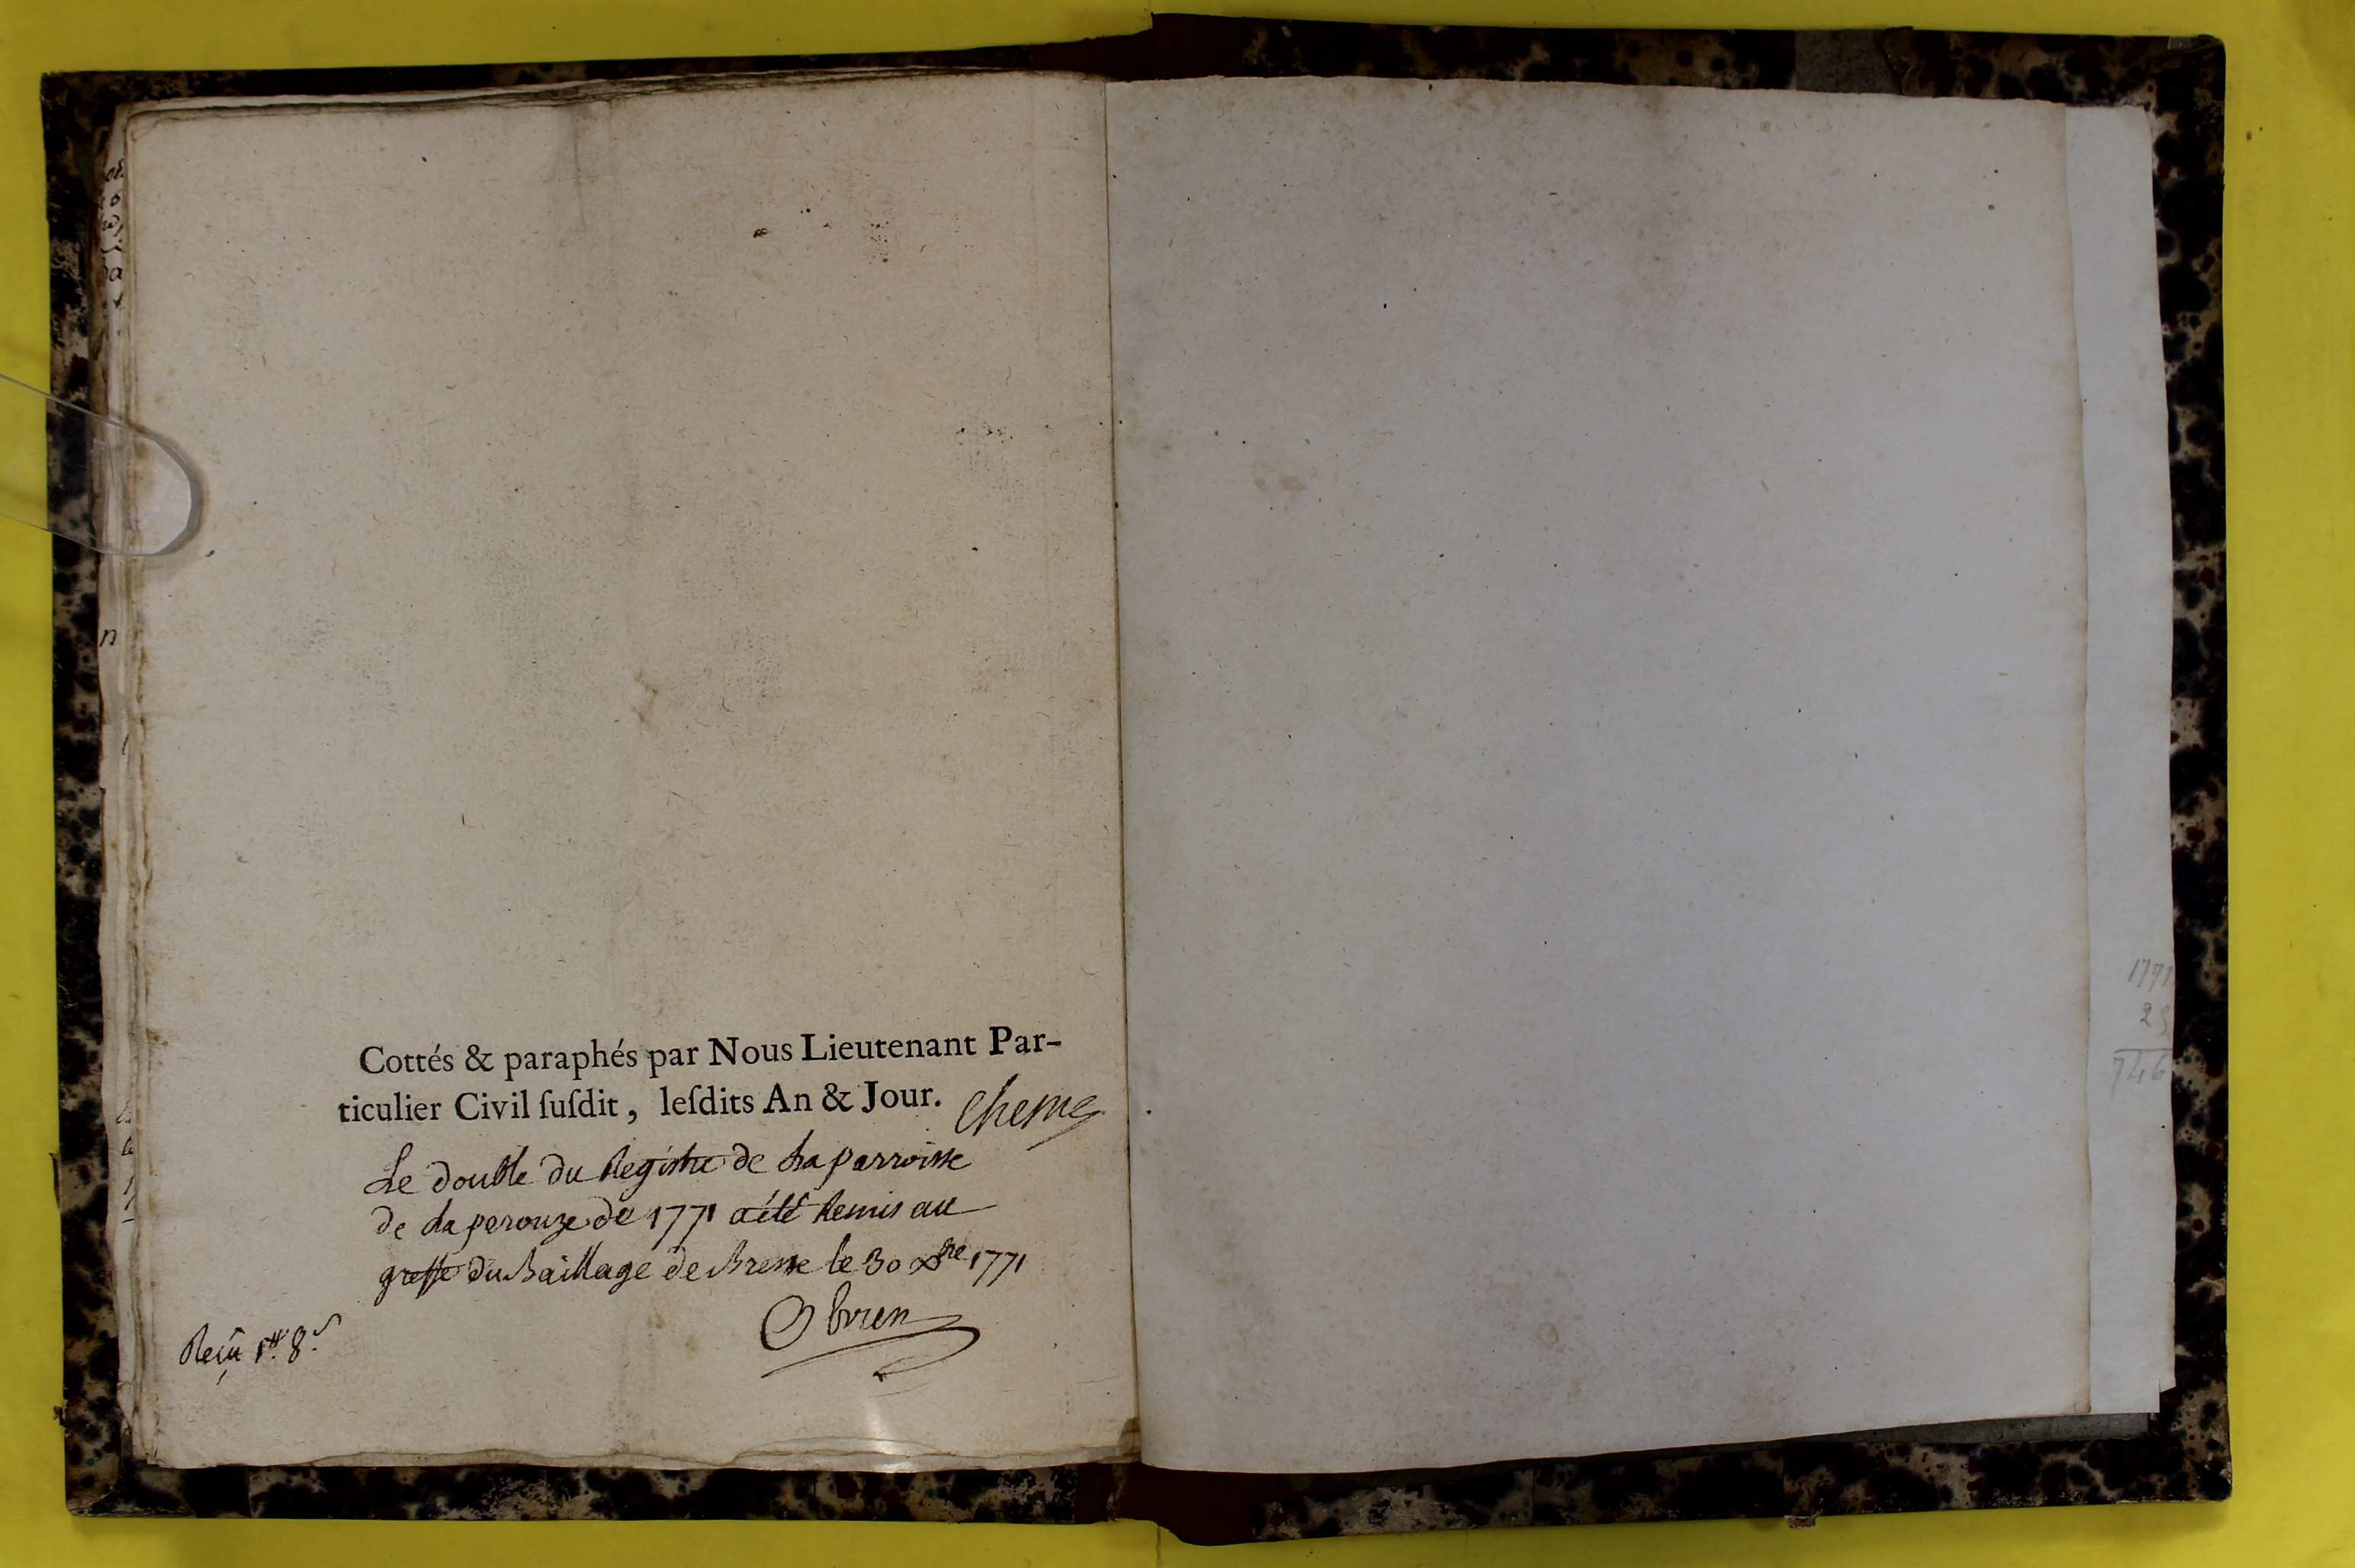 Cottés & paraphés par Nous Lieutenant Par-
ticulier Civil ſuſdit, leſdits An & Jour.
Le double du Registre de La parroisse
de La perouze de 1771 a été Remis au
greffe du Baillage de Bresse le 30 xbre 1771
Obrien
Reçu 1# 8s
1771